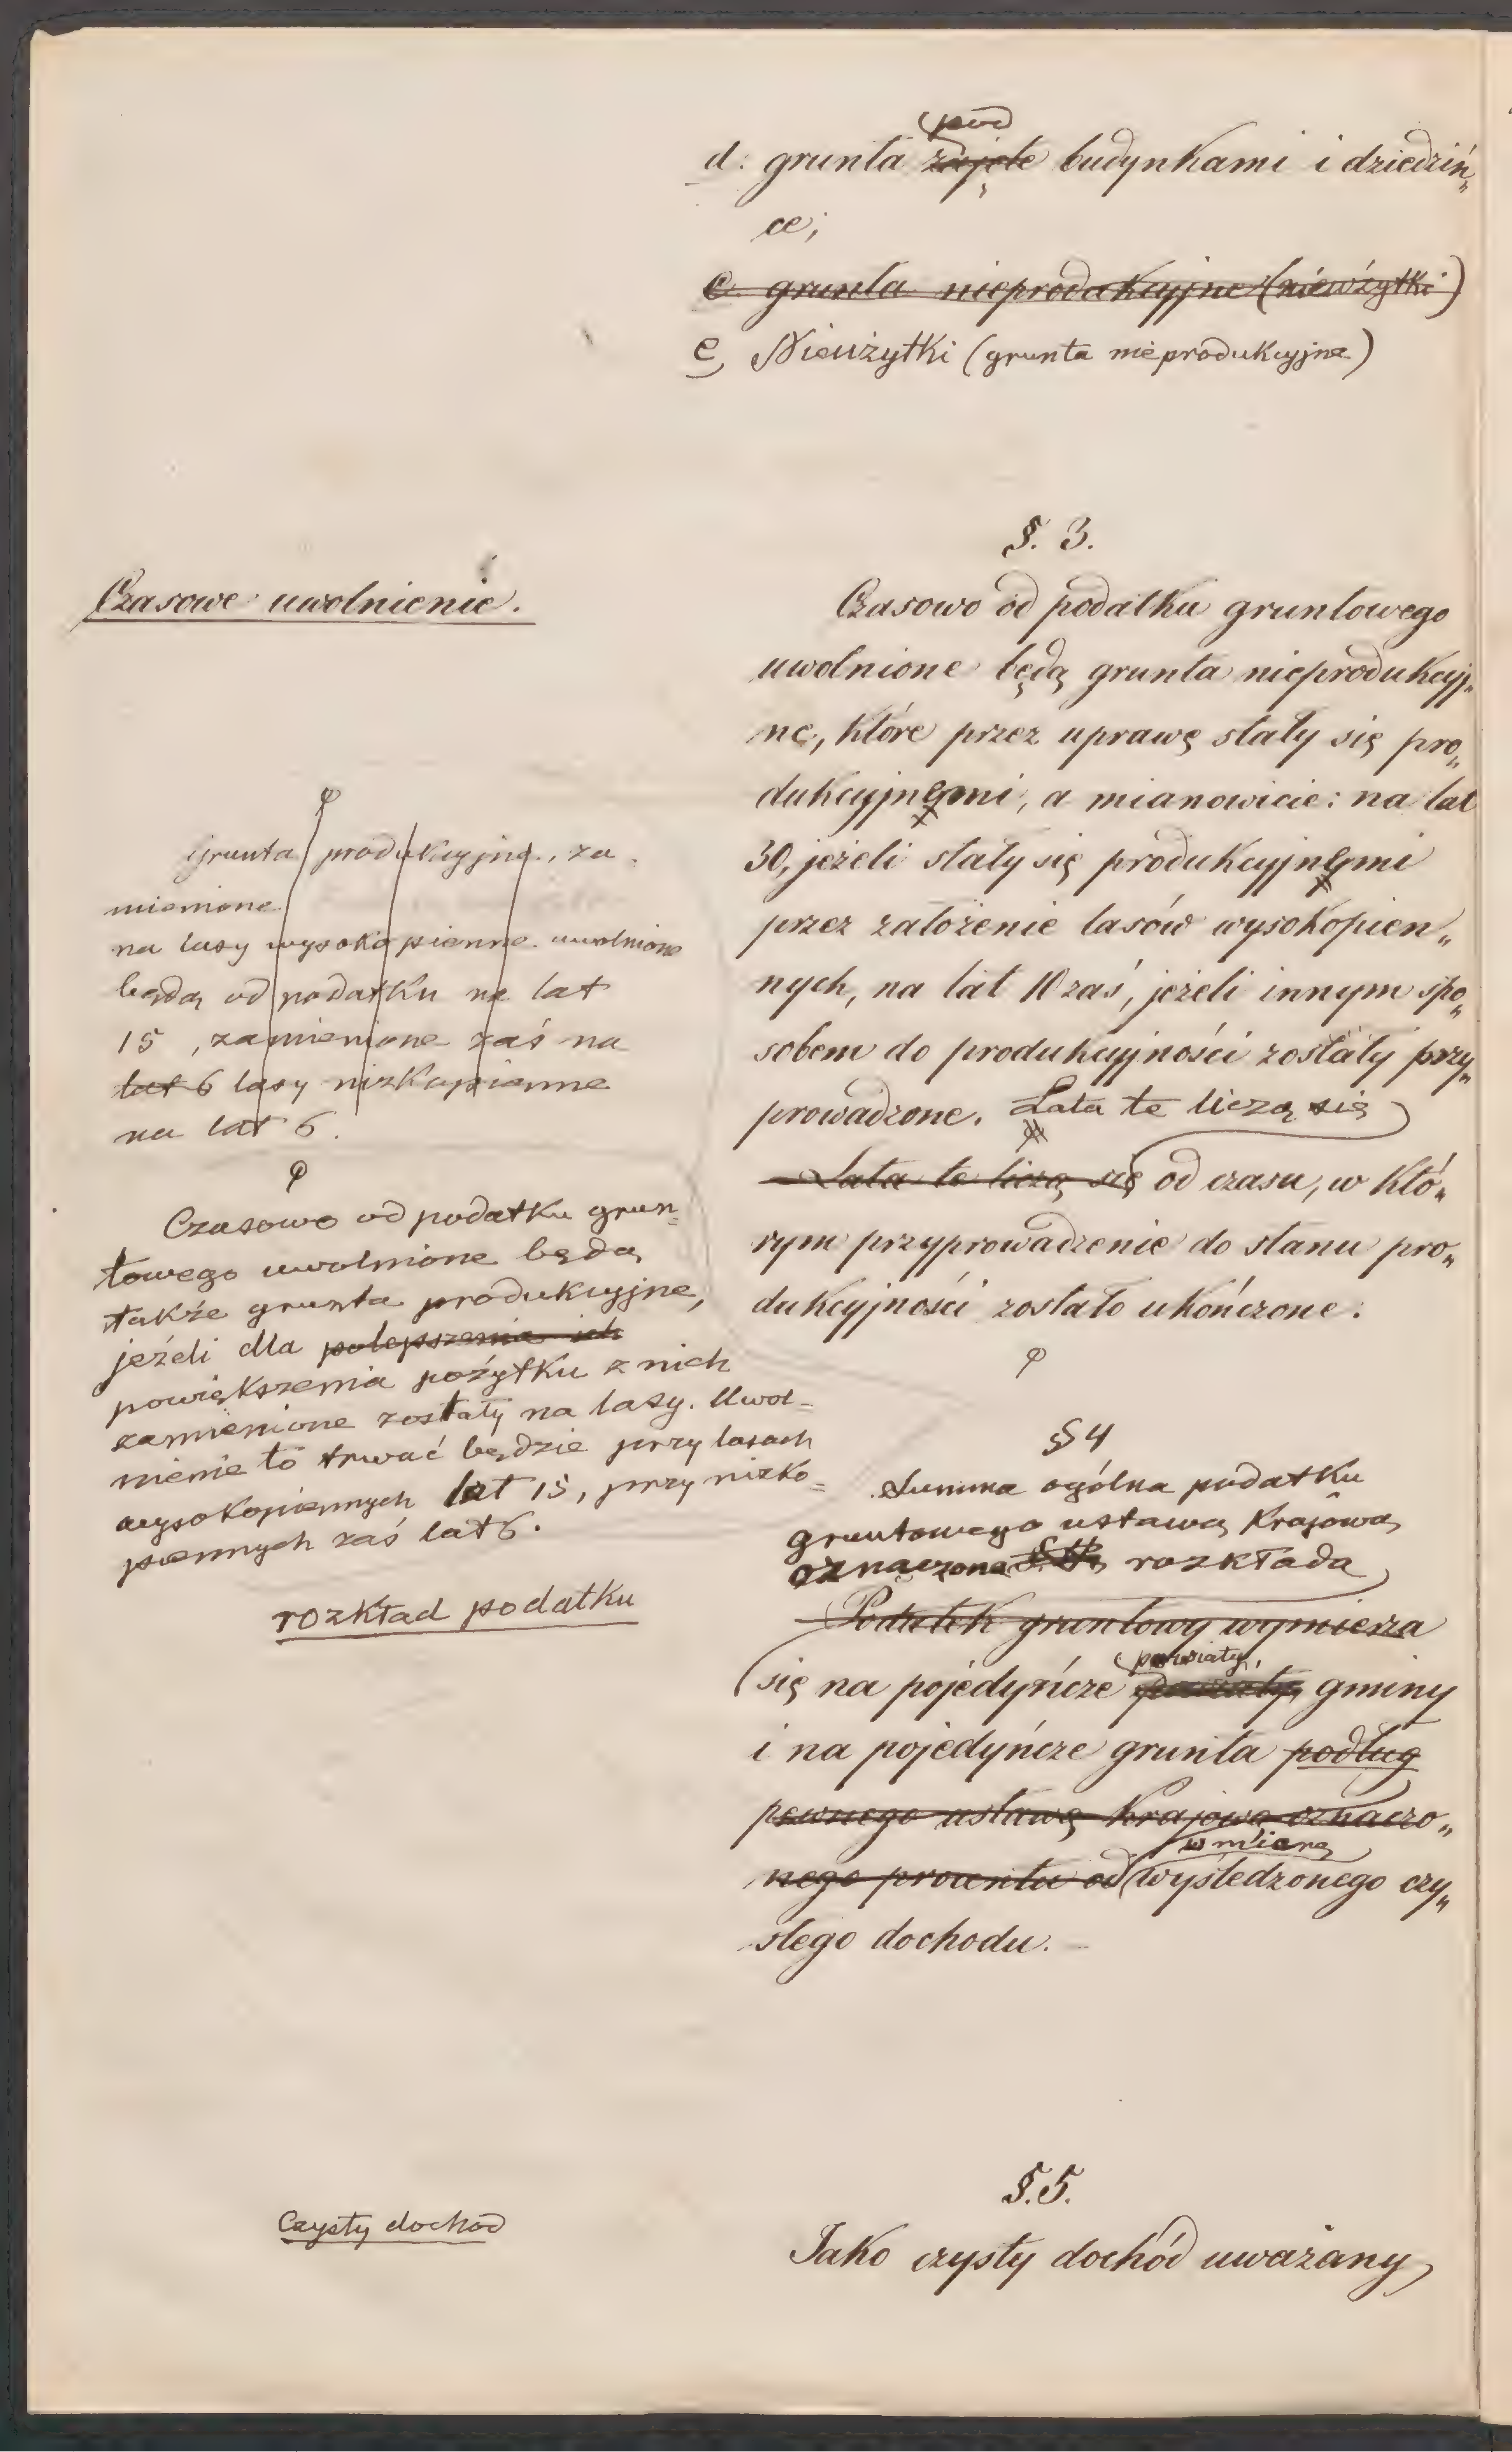 pod
d. grunta zajęte budynkami i dziedziń„
ce;
e. grunta nieprodukcyjne (nieużytki)
e, Nieużytki (grunta nieprodukcyjne)
§. 3.
Czasowe uwolnienie.
Czasowo od podatku gruntowego
uwolnione będą grunta nieprodukcyj„
ne, które przez uprawę stały się pro„
dukcyjnemi, a mianowicie: na lat
30, jeżeli stały się produkcyjnemi
przez założenie lasów wysokopien„
nych, na lat 10 zaś, jeżeli innym spo„
sobem do produkcyjności zostały przy„
prowadzone. Lata te liczą się
Lata te liczą się od czasu, w któ„
rym przyprowadzenie do stanu pro„
dukcyjności zostało ukończone.
Grunta produkcyjne, za
mienione
na lasy wysokopienne uwolnione
będą od podatku na lat
15, zamienione zaś na
lat 6 lasy nizkopienne
na lat 6.
Czasowo od podatku grun=
towego uwolnione będą
także grunta produkcyjne,
jeżeli dla polepszenia ich
powiększenia pożytku z nich
zamienione zostały na lasy. Uwol=
nienie to trwać będzie przy lasach
wysokopiennych lat 15, przy nizko=
piennych zaś lat 6.
rozkład podatku
§ 4
Summa ogólna podatku
gruntowego ustawą krajową
oznaczona rozkłada
Podatek gruntowy wymierza
powiaty,
się na pojedyńcze powiaty, gminy
i na pojedyńcze grunta podług
pewnego ustawą krajową oznaczo„
w miarę
nego procentu od wyśledzonego czy„
stego dochodu.
§. 5.
Czysty dochód
Jako czysty dochód uważany